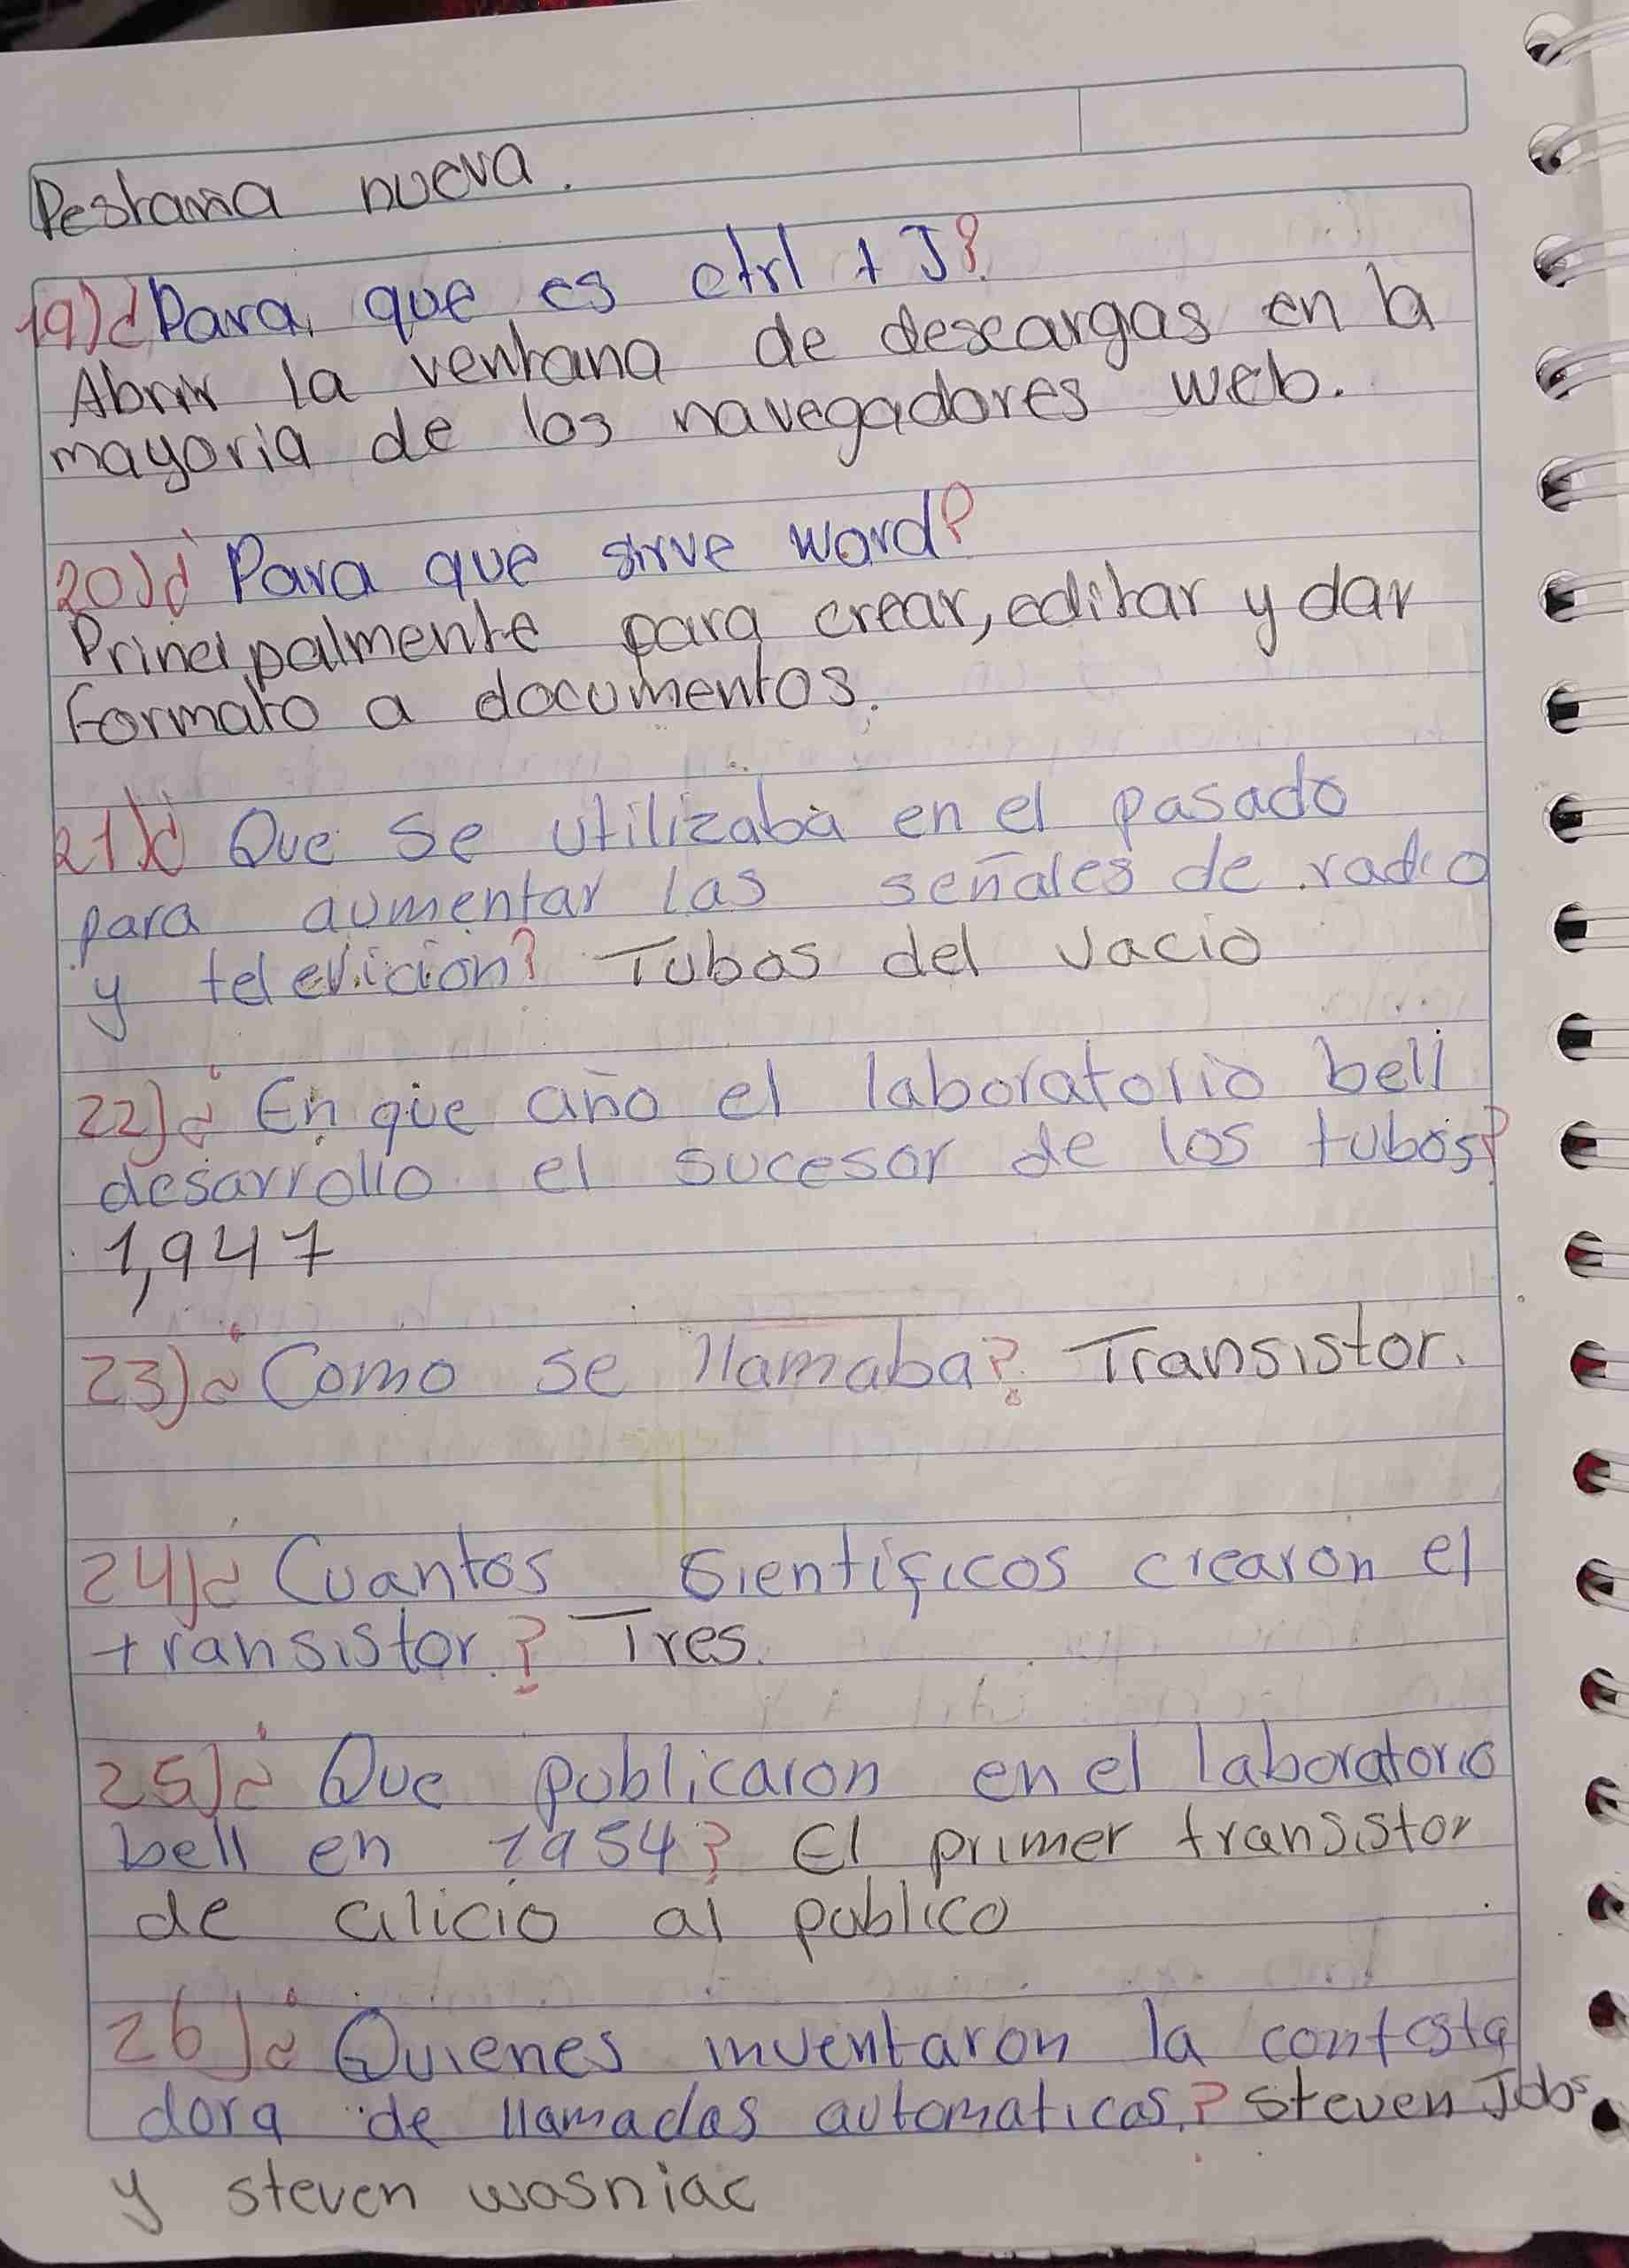 Pestaña nueva.
19)¿Para que es ctrl + J?
Abrir la ventana de descargas en la
mayoria de los navegadores web.
20)¿ Para que sirve word?
Principalmente para crear, editar y dar
Formato a documentos.
21)¿ Que se utilizaba en el pasado
para aumentar las señales de radio
y televicion? Tubos del vacio
22)¿ En que año el laboratorio bell
desarrollo el sucesor de los tubos?
1,947
23)¿Como se llamaba? Transistor.
24)¿ Cuantos sientificos crearon el
transistor.? Tres.
25)¿ Que publicaron en el laboratorio
bell en 1954? El primer transistor
de cilicio al publico
26)¿ Quienes inventaron la contesta
dora de llamadas automaticas.? Steven Jobs
y steven wosniac